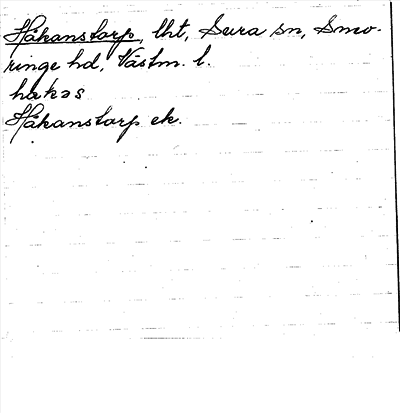 Håkanstorp, lht, Sura sn, Snev-
ringe hd, Västm. l.
hakəs
Håkanstorp ek.